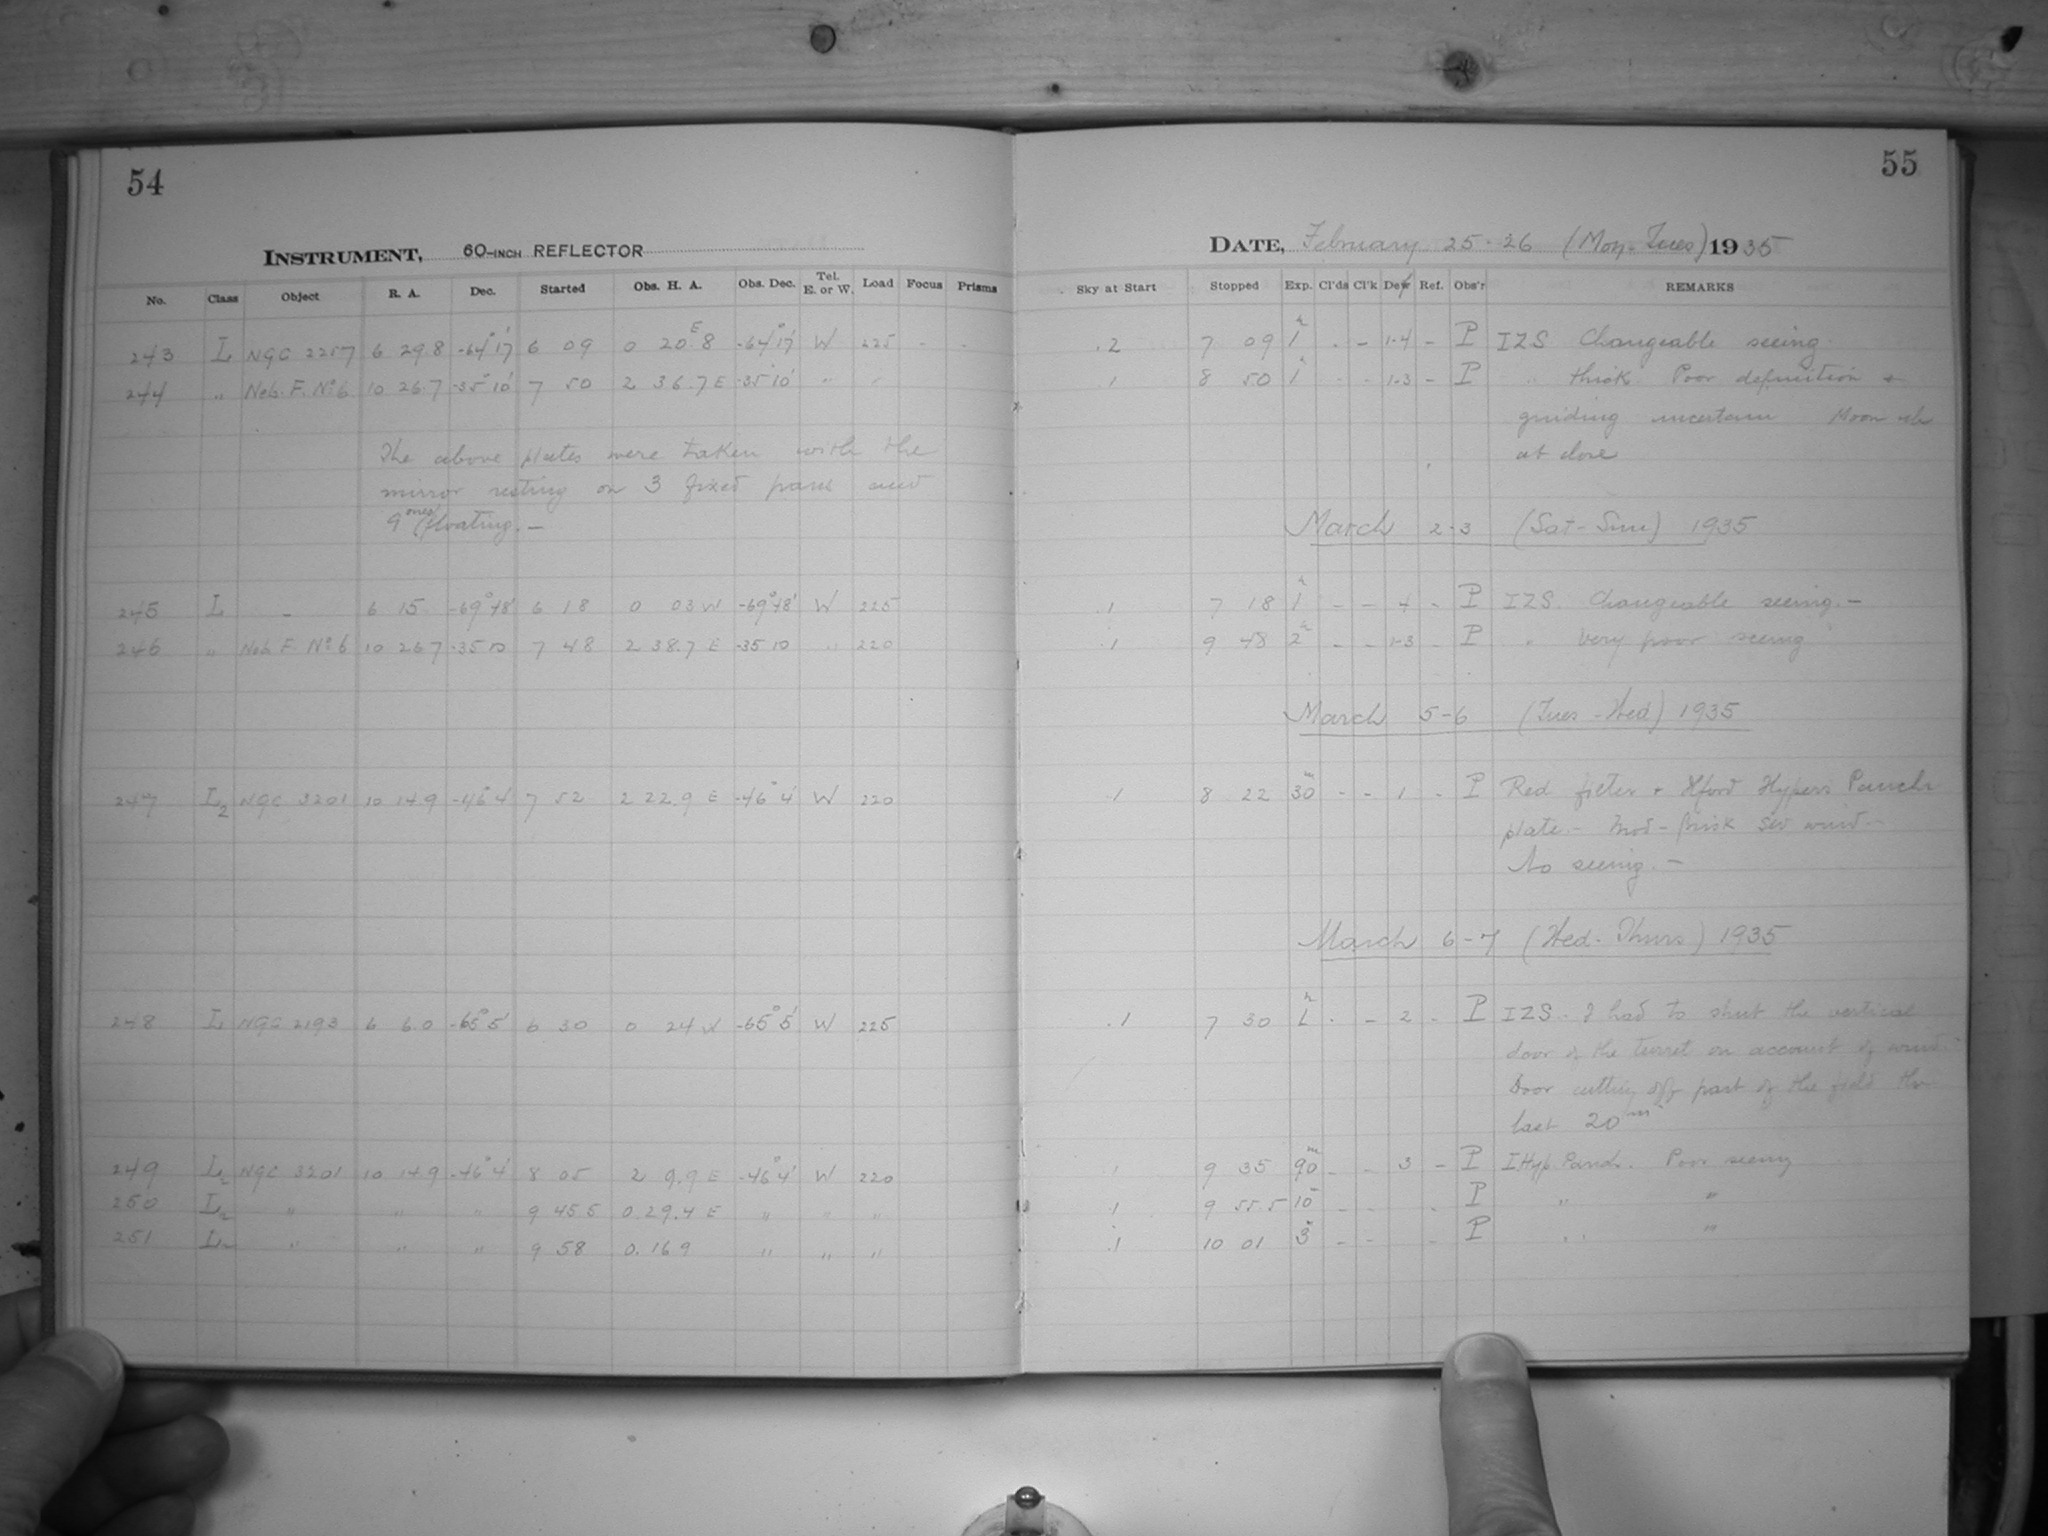 54
INSTRUMENT, 60-INCH REFLECTOR
No. Class Object R. A. Dec. Started Obs. H. A. Obs. Dec. Tel. E. or W. Load Focus Prisms
243 L NGC 2257 6 29.8 -64°17' 6 09 0 20.8 E -64°17' W 225 - -
244 " Neb. F. No 6 10 26.7 -35°10' 7 50 2 36.7 E -35°10' " "
The above plates were taken with the
mirror resting on 3 fixed pads and
9 ones floating. —
245 L - 6 15 -69°48' 6 18 0 03 W -69°48' W 225
246 " Neb. F. No 6 10 26.7 -35 10 7 48 2 38.7 E -35 10 " 220
247 L2 NGC 3201 10 14.9 -46°4' 7 52 2 22.9 E -46°4' W 220
248 L NGC 2193 6 6.0 -65°5' 6 30 0 24 W -65°5' W 225
249 L2 NGC 3201 10 14.9 -46°4' 8 05 2 9.9 E -46°4' W 220
250 L2 " " " 9 45.5 0.29.4 E " " "
251 L2 " " " 9 58 0.16 9 " " "
55
DATE, February 25-26 (Mon-Tues) 1935
Sky at Start Stopped Exp. Cl'ds Cl'k Dew Ref. Obs'r REMARKS
.2 7 09 1h - - 1-4 - P IZS Changeable seeing
.1 8 50 1h - - 1-3 - P " thick. Poor definition +
guiding uncertain Moon
at close
March 2-3 (Sat-Sun) 1935
.1 7 18 1h - - 4 - P IZS. Changeable seeing. —
.1 9 48 2h - - 1-3 - P " Very poor seeing
March 5-6 (Tues-Wed) 1935
.1 8 22 30m - - 1 - P Red filter + Ilford Hypers Panchr
plate. - Mod-brisk SW wind. -
No seeing. —
March 6-7 (Wed-Thurs) 1935
.1 7 30 1h - - 2 - P IZS. I had to shut the vertical
door of the turret on account of wind.
Door cutting off part of the field the
last 20m
.1 9 35 90m - - 3 - P IHyp. Panch. Poor seeing
.1 9 55.5 10m - - - P " "
.1 10 01 3m - - - P " "